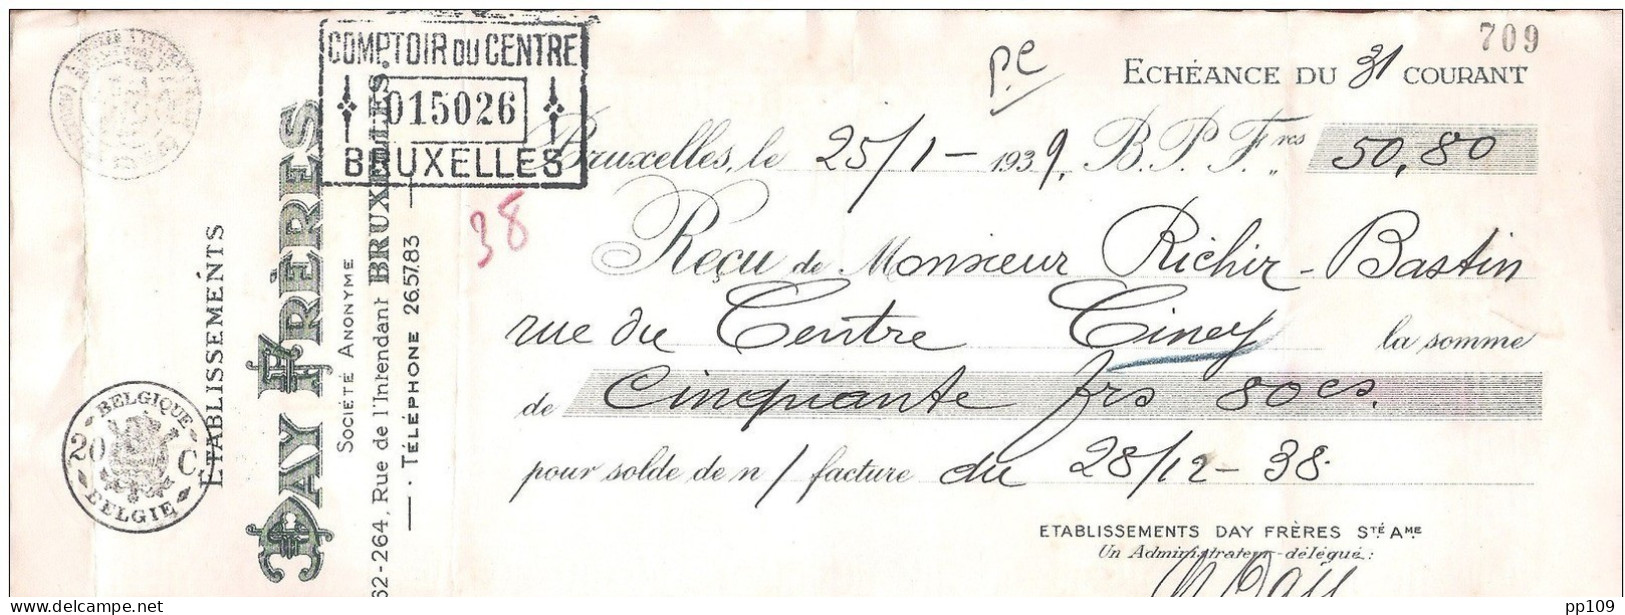 709
COMPTOIR DU CENTRE
015026
BRUXELLES
p.c
ECHÉANCE DU 31 COURANT
Bruxelles, le 25/1 - 1939, B. P. Frcs „ 50,80
38
Reçu de Monsieur Richir - Bastin
rue du Centre Ciney la somme
de Cinquante frs 80 cs.
pour solde de n/ facture du 28/12 - 38.
ETABLISSEMENTS DAY FRÈRES STÉ AME
Un Administrateur-délégué:
ETABLISSEMENTS
DAY FRÈRES
SOCIÉTÉ ANONYME
62-264, Rue de l'Intendant BRUXELLES.
— · TÉLÉPHONE 26.57.83 —
BELGIQUE
20 C
BELGIE
delcampe.net
pp109